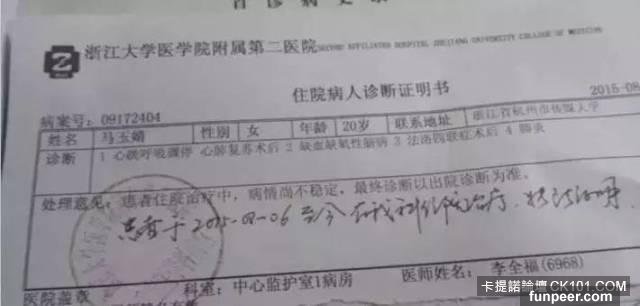 浙江大学医学院附属第二医院 SECOND AFFILIATED HOSPITAL ZHEJIANG UNIVERSITY COLLEGE OF MEDICINE
住院病人诊断证明书
病案号: 09172404 2015-08
姓名 马玉婧 性别 女 年龄 20岁 联系地址 浙江省杭州市传媒大学
诊断 1 心跳呼吸骤停 心肺复苏术后 2 缺血缺氧性脑病 3 法洛四联症术后 4 肺炎
处理意见: 患者住院治疗中，病情尚不稳定，最终诊断以出院诊断为准。
患者于2015-08-06至今在我科住院治疗，特此证明
医院盖章 科室: 中心监护室1病房 医师姓名: 李全福(6968)
卡提諾論壇 CK101.COM
funpeer.com